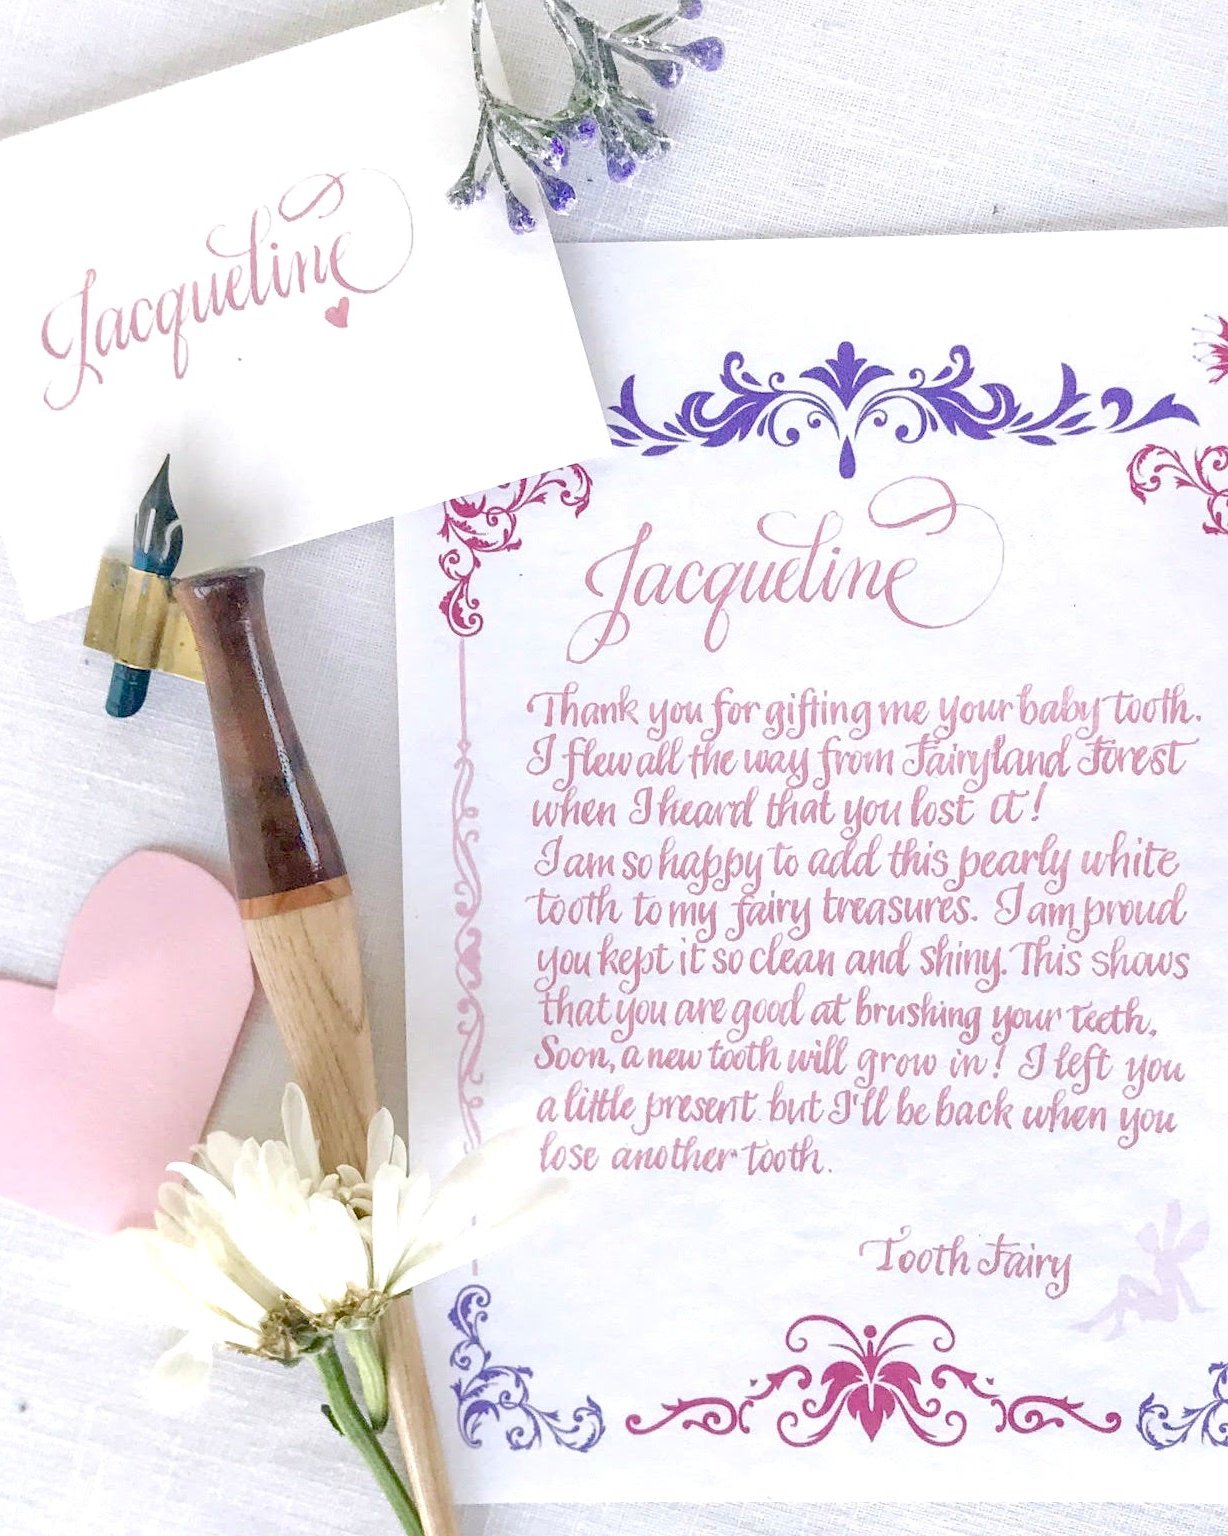 Jacqueline
Jacqueline
Thank you for gifting me your baby tooth.
I flew all the way from Fairyland Forest
when I heard that you lost it!
I am so happy to add this pearly white
tooth to my fairy treasures. I am proud
you kept it so clean and shiny. This shows
that you are good at brushing your teeth.
Soon, a new tooth will grow in! I left you
a little present but I'll be back when you
lose another tooth.
Tooth Fairy